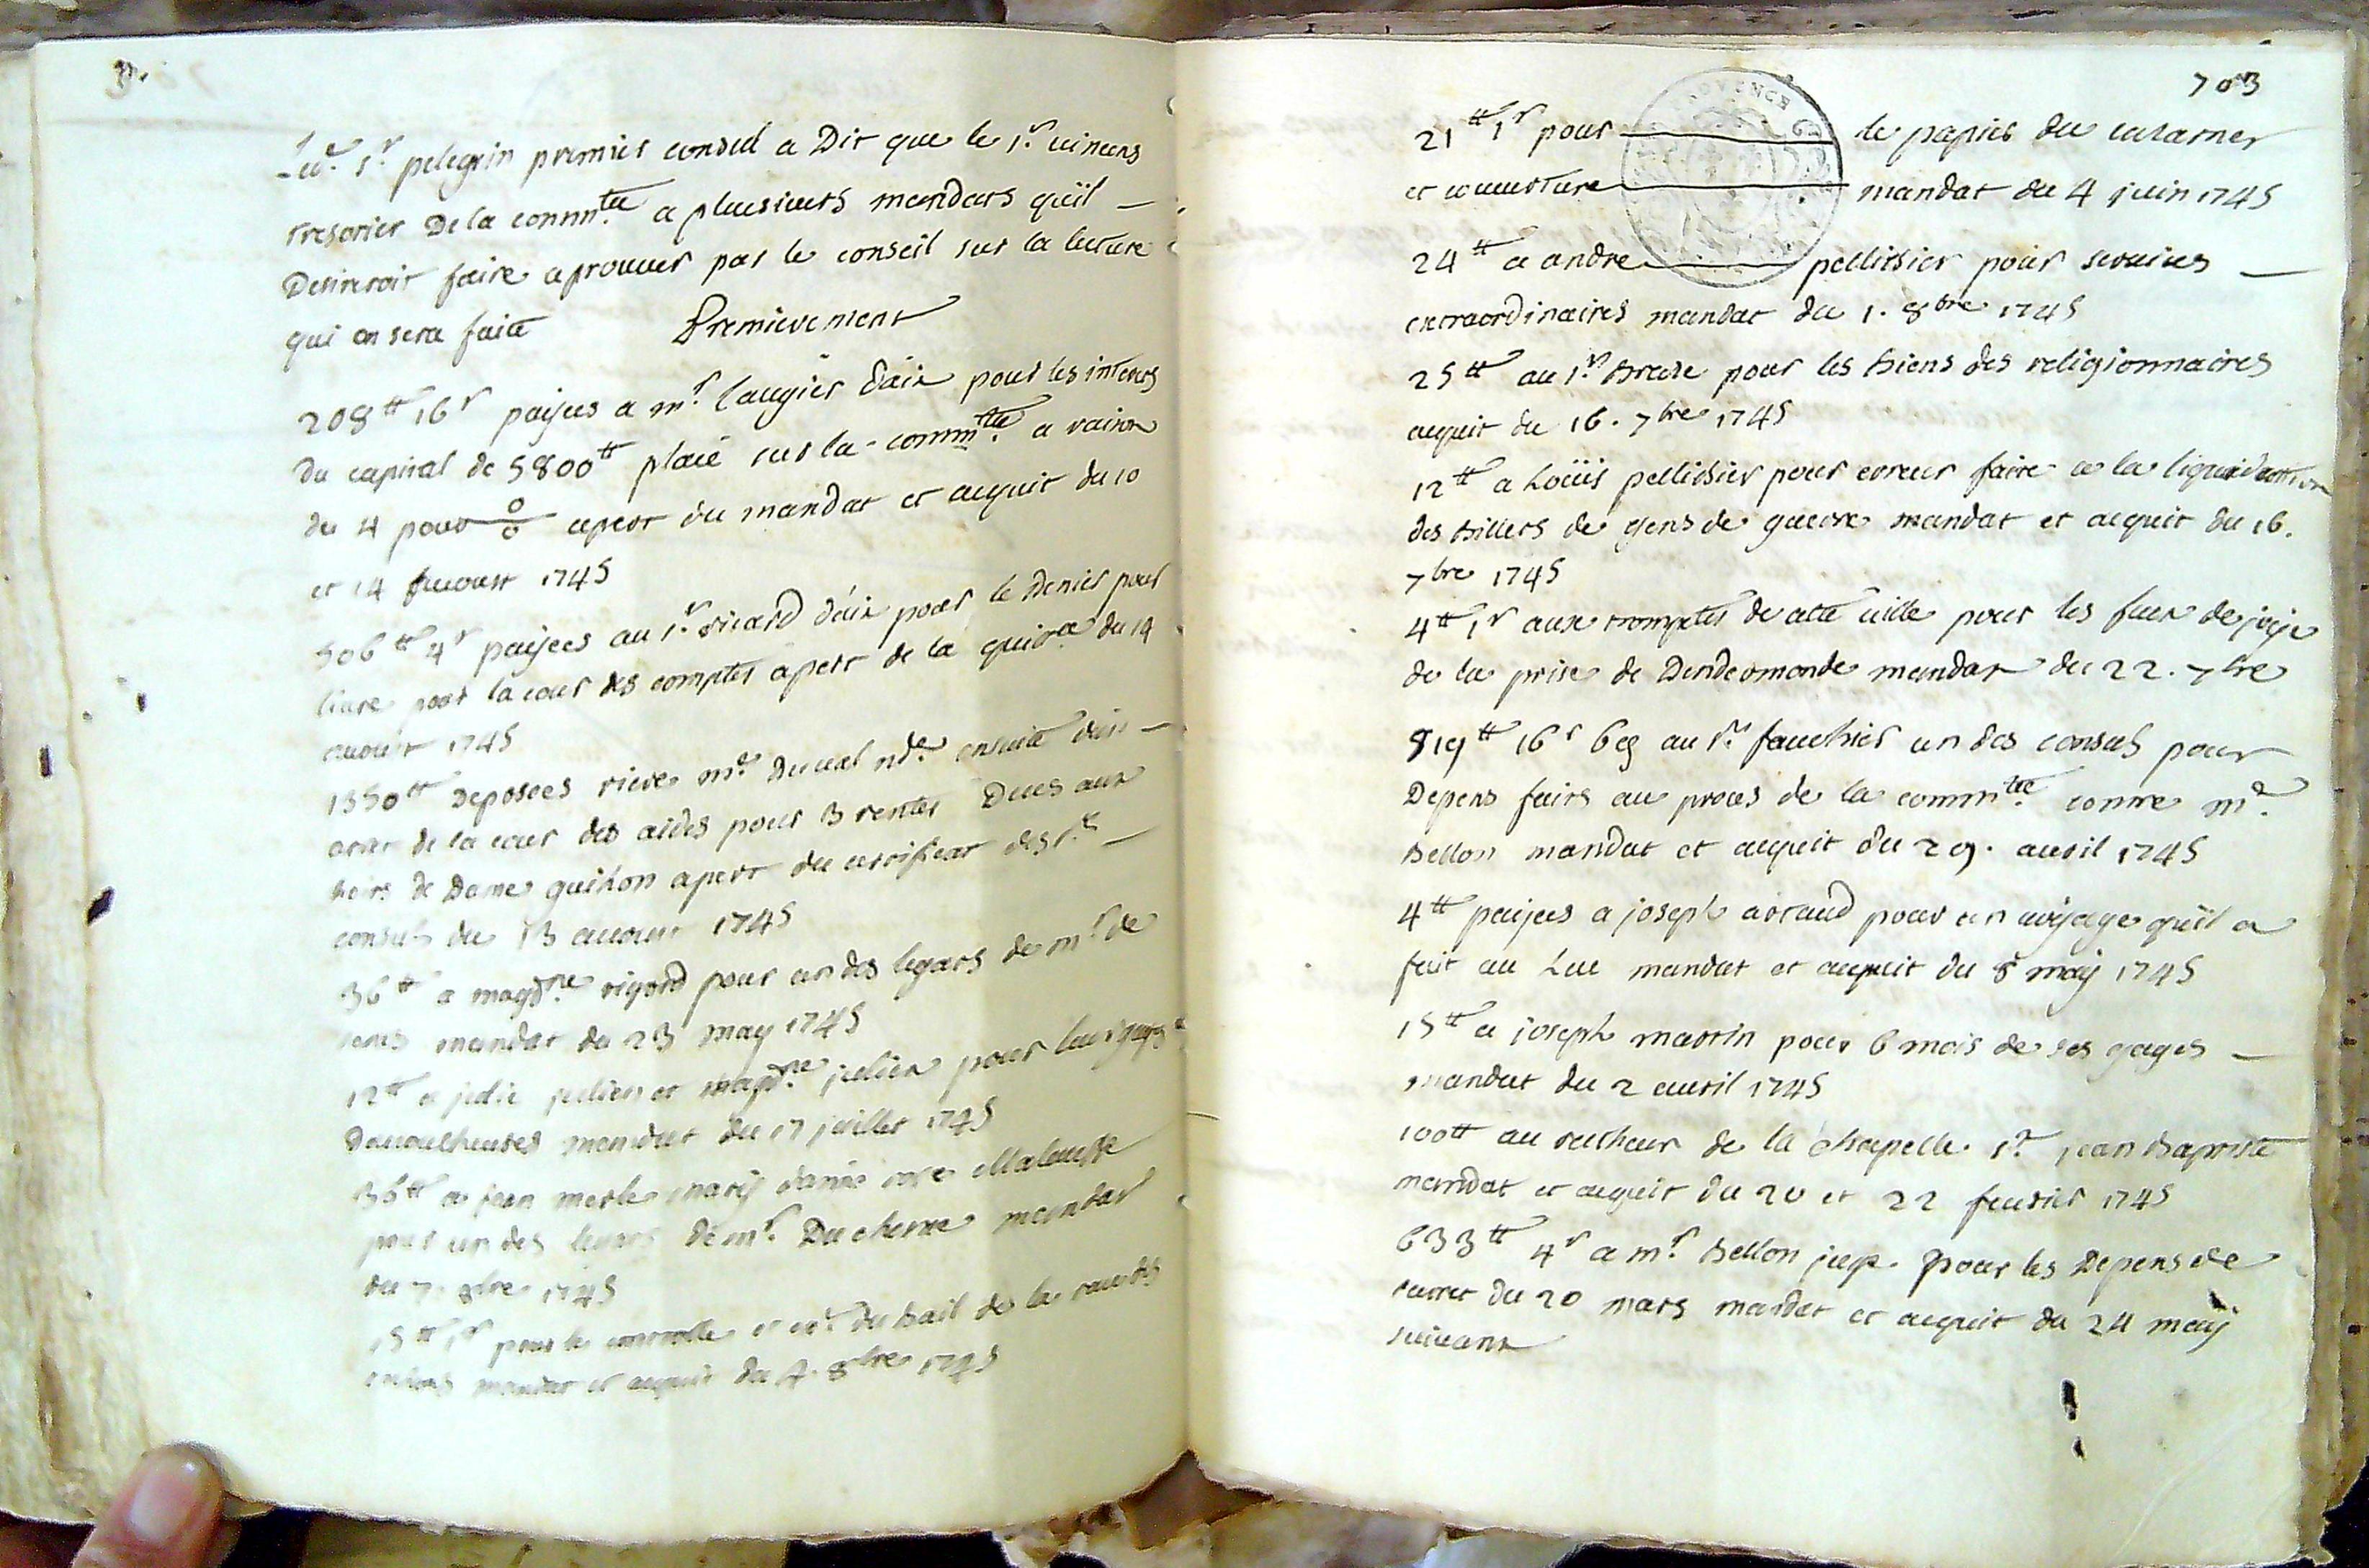 Led.t s.r pelegrin premier consul a Dit que le s.r uincens
tresorier De la comm.té a plusieurs mandats qu'il
Desireroit faire aprouuer par le conseil sur la lecture
qui en sera faite Premierement
208 tt 16 s payees a m.r laugier d'aix pour les interets
du capital de 5800 tt placé sur la comm.té a raison
du 4 pour 0/0 apert du mandat et acquit du 10
et 14 auoust 1745
506 tt 4 s payees au s.r ricard d'aix pour le Denier pour
liure pour la cour des comptes apert de la quitce du 14
auoust 1745
1350 tt Deposees riere m.e Duual nd.e ensuite d'un
arret de la cour des aides pour 3 rentes Dues aux
hoirs de Dame guihon apert du certificat des s.rs
consuls du 13 auoust 1745
36 tt a magd.ne rigord pour un des legats de m.r de
mandat du 23 may 1745
12 tt a julie julien et magd.ne julien pour leur gages
mandat du 17 juillet 1745
36 tt a jean merle mary d'anne rose Malausse
pour un des legats de m.r Ducherne mandat
du 7. 8bre 1745
15 tt 1 s pour le controlle et du bail de la raue des
mandat et acquit du 4. 8bre 1745
703
21 tt 1 s pour le papier du cazarnet
et couuerture mandat du 4 juin 1745
24 tt a andre pellissier pour seruices
extraordinaires mandat du 1. 8bre 1745
25 tt au s.r Breze pour les biens des religionnaires
acquit du 16. 7bre 1745
12 tt a Loüis pellissier pour erreur faite a la liquidation
des billets de gens de guerre mandat et acquit du 16.
7bre 1745
4 tt 1 s aux trompetes de cette uille pour les feux de joye
de la prise de Dendermonde mandat du 22. 7bre
819 tt 16 s 6 d au s.r fauchier un des consuls pour
Depens faits au proces de la comm.té contre m.e
Bellon mandat et acquit du 29. auril 1745
4 tt payees a joseph arnaud pour un uoyage qu'il a
fait au Luc mandat et acquit du 8 may 1745
15 tt a joseph martin pour 6 mois de ses gages
mandat du 2 auril 1745
100 tt au recteur de la chapelle s.t jean Baptiste
mandat et acquit du 20 et 22 feurier 1745
633 tt 4 s a m.r Bellon juge pour les Depens de
l'arret du 20 mars mandat et acquit du 24 may
suiuant